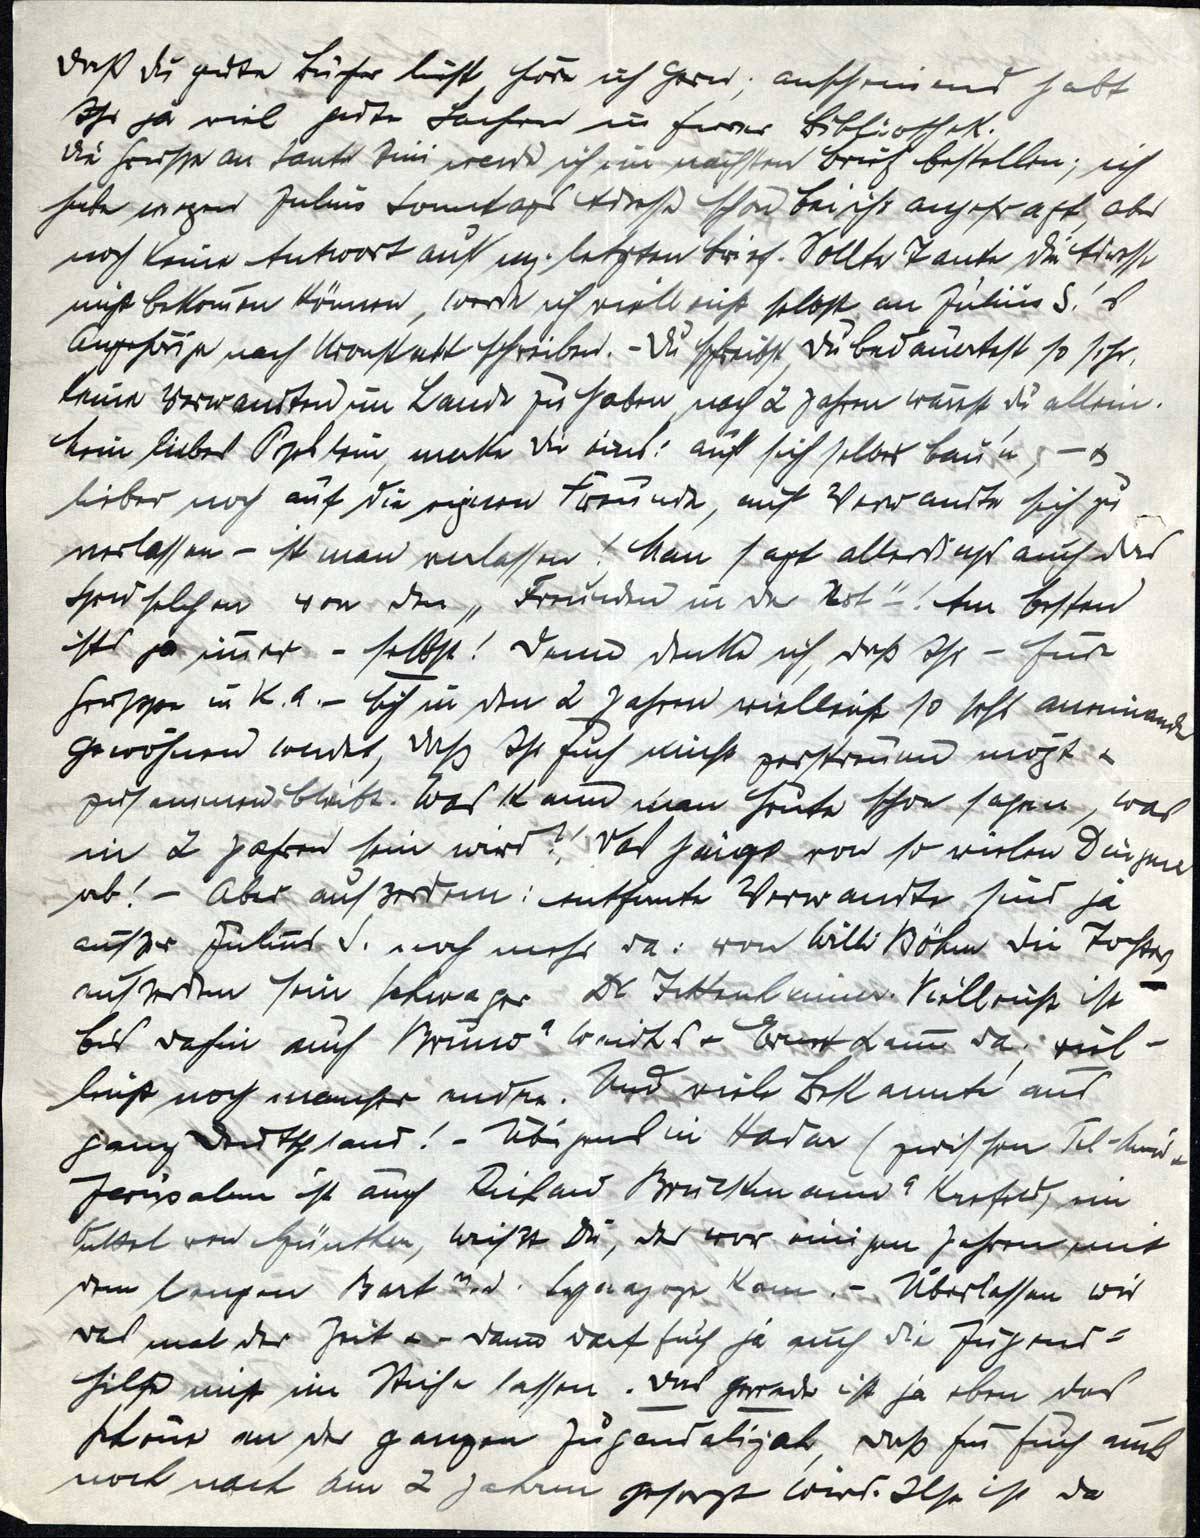 Daß du gute Bücher liest, höre ich gern; anscheinend habt
Ihr ja viel gute Sachen in Eurer Bibliothek.
Die Grüße an Tante werde ich im nächsten Brief bestellen; ich
habe wegen Julius Sonntags Adresse schon bei ihr angefragt, aber
noch keine Antwort auf m. letzten Brief. Sollte Tante die Adresse
nicht bekommen können, werde ich vielleicht selbst an Julius S.'s
Angehörige nach schreiben. - Du schreibst, Du bedauertest so sehr,
keine Verwandten im Lande zu haben, nach 2 Jahren wärest du allein.
Mein liebes, merke Dir eins: auf sich selber bau'n, - &
lieber noch auf die eignen Freunde, auf Verwandte sich zu
verlassen - ist man verlassen! Man sagt allerdings auch das
Sprüchelchen von den "Freunden in der Not"-! Am besten
ists ja immer - selbst! Dann denke ich, daß Ihr - Eure
Gruppe in K.A. - Euch in den 2 Jahren vielleicht so sehr aneinander
gewöhnen werdet, daß Ihr Euch nicht zerstreuen mögt &
zusammen bleibt. Was kann man heute schon sagen, was
in 2 Jahren sein wird?! Das hängt von so vielen Dingen
ab! - Aber außerdem: entfernte Verwandte sind ja
außer Julius S. noch mehr da: von Willi Böhm die Tochter,
außerdem sein Schwager Dr. Vielleicht ist
bis dahin auch Bruno & Ernst da, viel-
leicht noch mancher andre. Und viele Bekannte aus
ganz Deutschland! - Übrigens in Hadar (zwischen Tel-Aviv &
Jerusalem ist auch Richard Bruckmann a Krefeld, ein
Onkel von Günther, weißt Du, der vor einigen Jahren mit
dem langen Bart i. d. Synagoge kam. - Überlassen wir
das mal der Zeit & - dann darf Euch ja auch die Jugend=
hilfe nicht im Stiche lassen. Das gerade ist ja eben das
Schöne an der ganzen Jugendalijah, daß für Euch auch
noch nach den 2 Jahren gesorgt wird. Ilse ist da